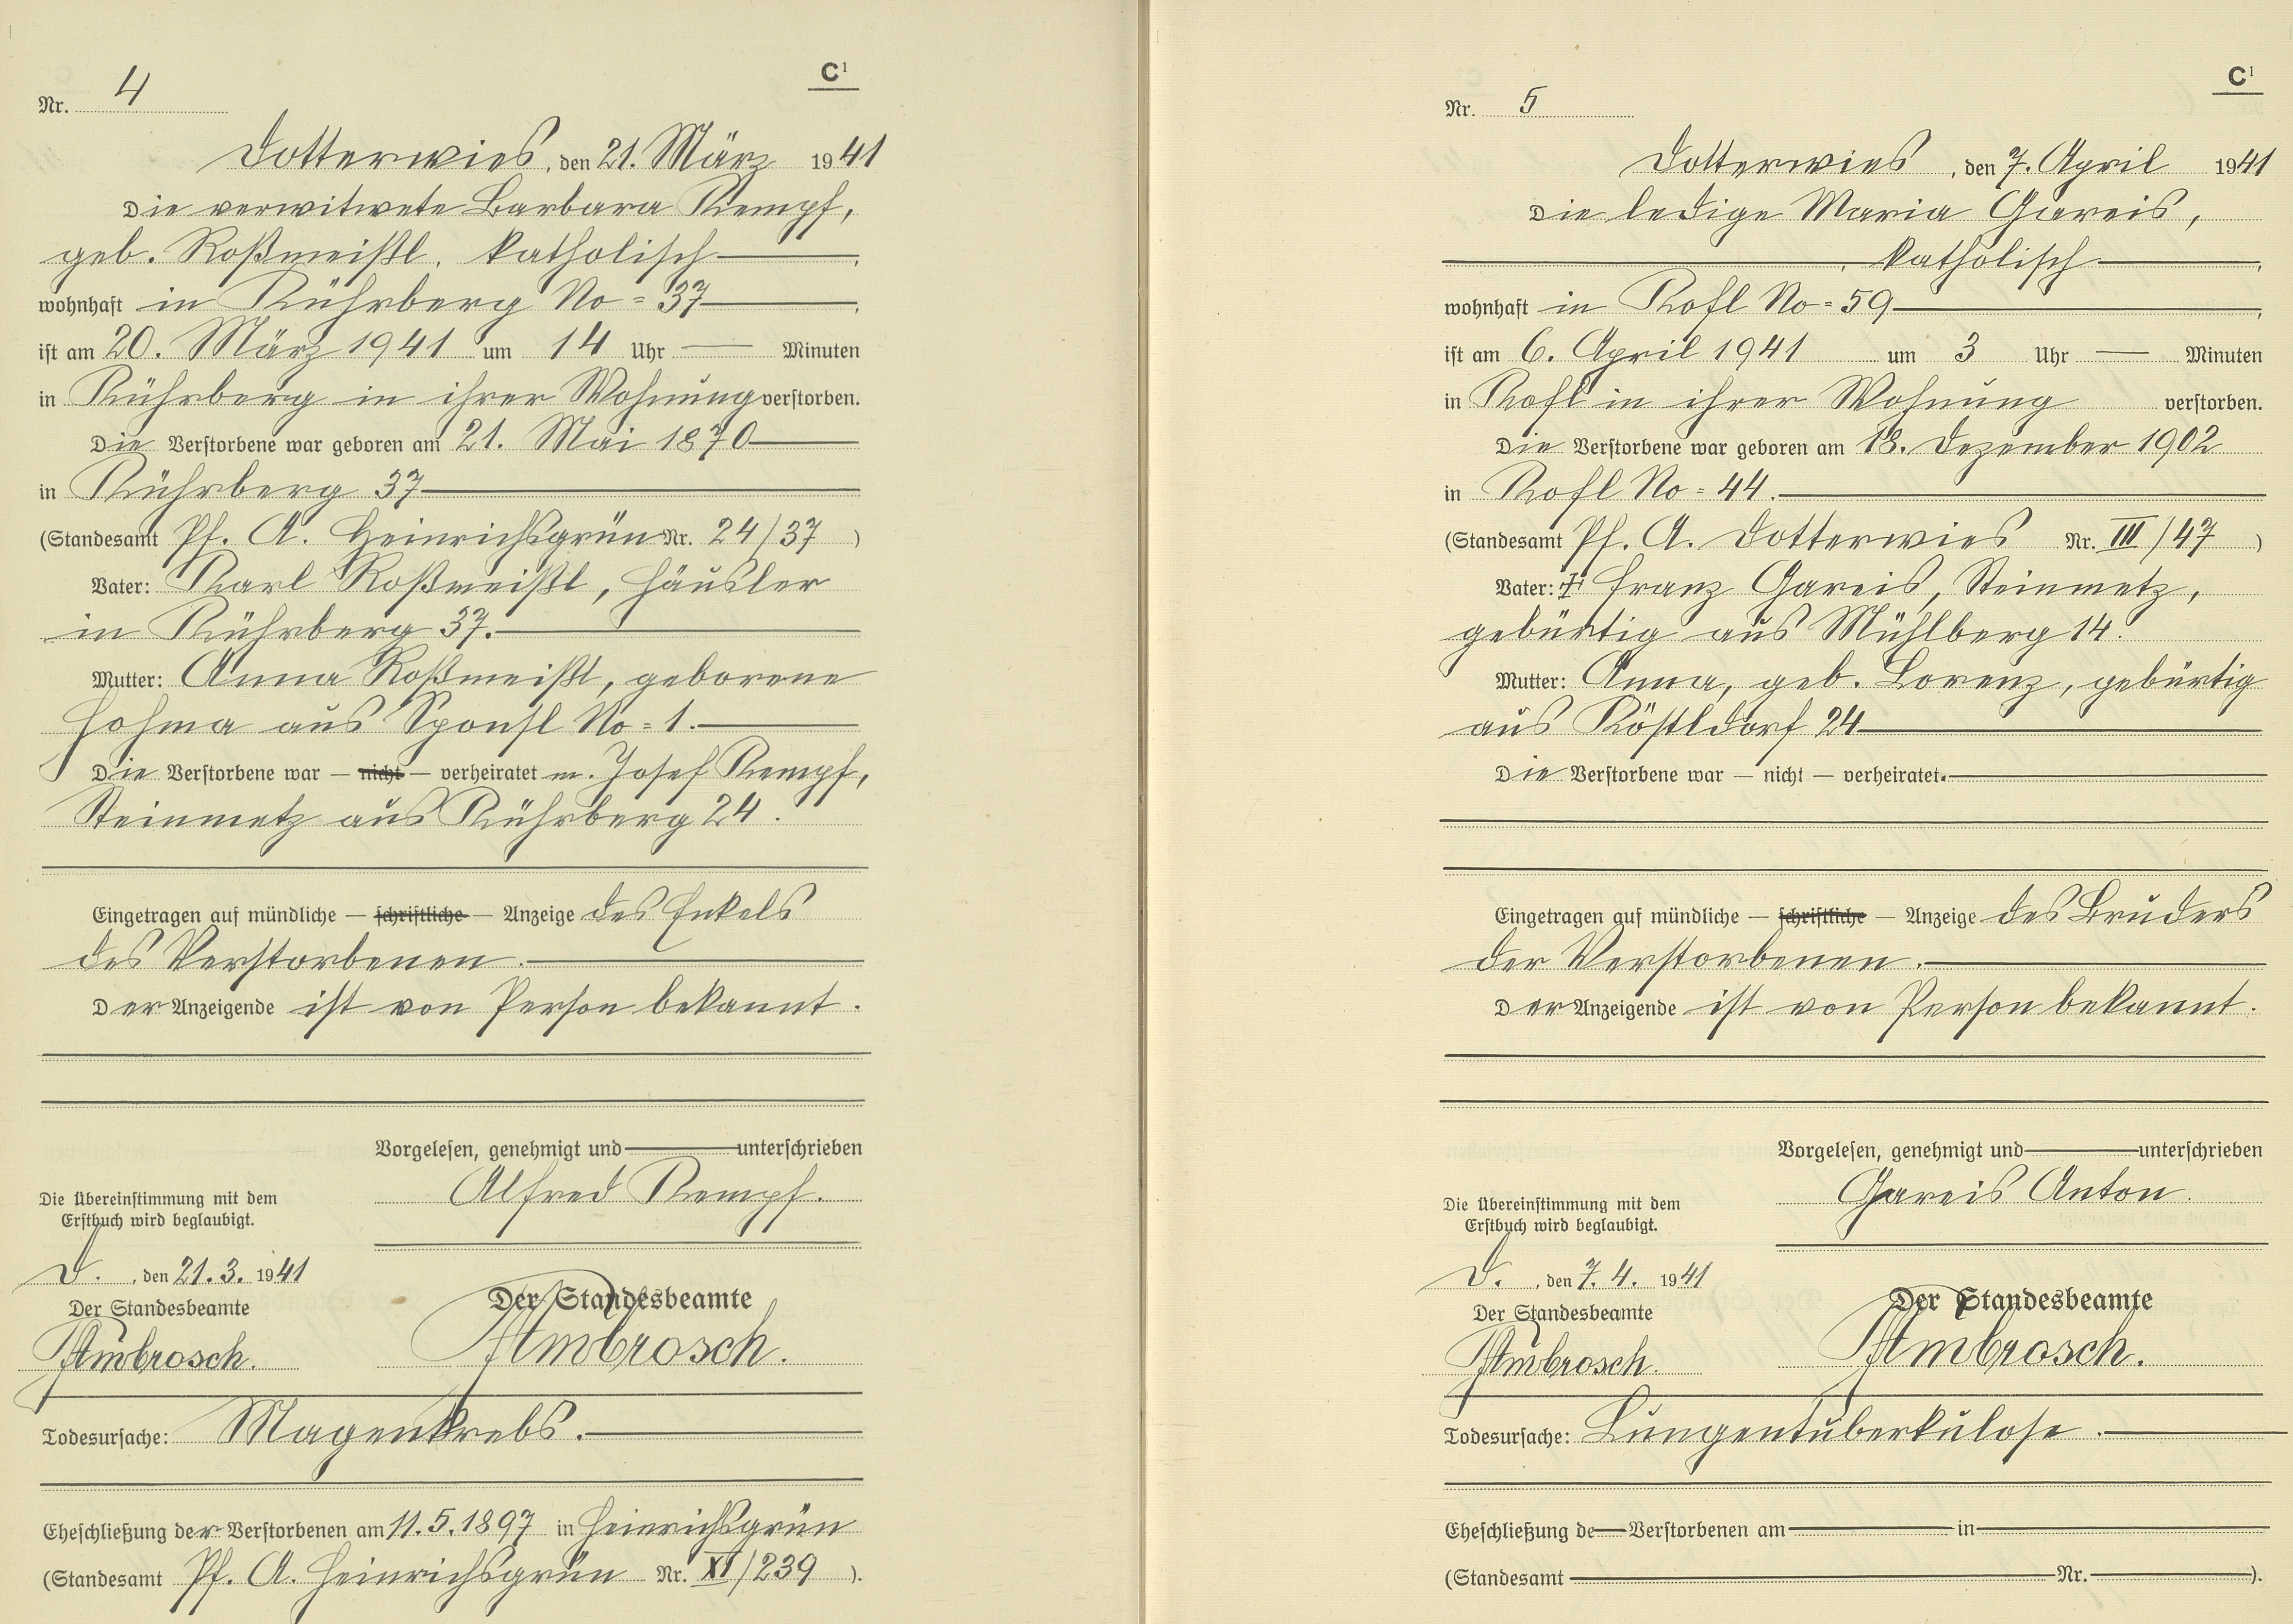 C¹
Nr. 4
Dotterwies, den 21. März 1941
Die verwitwete Barbara Kempf,
geb. Roßmeißl, katholisch
wohnhaft in Kührberg No = 37
ist am 20. März 1941 um 14 Uhr — Minuten
in Kührberg in ihrer Wohnung verstorben.
Die Verstorbene war geboren am 21. Mai 1870
in Kührberg 37
(Standesamt Pf. A. Heinrichsgrün Nr. 24/37 )
Vater: Karl Roßmeißl, Häusler
in Kührberg 37.
Mutter: Anna Roßmeißl, geborene
Hohma aus Sponsl No = 1.
Die Verstorbene war — nicht — verheiratet m. Josef Kempf,
Steinmetz aus Kührberg 24.
Eingetragen auf mündliche — schriftliche — Anzeige des Enkels
des Verstorbenen.
Der Anzeigende ist von Person bekannt.
Vorgelesen, genehmigt und unterschrieben
Alfred Kempf.
Die Übereinstimmung mit dem
Erstbuch wird beglaubigt.
D. , den 21. 3. 1941
Der Standesbeamte
Ambrosch.
Der Standesbeamte
Ambrosch.
Todesursache: Magenkrebs.
Eheschließung der Verstorbenen am 11. 5. 1897 in Heinrichsgrün
(Standesamt Pf. A. Heinrichsgrün Nr. XI/239 ).
C¹
Nr. 5
Dotterwies, den 7. April 1941
Die ledige Maria Gareis,
, katholisch
wohnhaft in Kofl No = 59
ist am 6. April 1941 um 3 Uhr — Minuten
in Kofl in ihrer Wohnung verstorben.
Die Verstorbene war geboren am 18. Dezember 1902
in Kofl No = 44.
(Standesamt Pf. A. Dotterwies Nr. III/47 )
Vater: † Franz Gareis, Steinmetz,
gebürtig aus Mühlberg 14.
Mutter: Anna, geb. Lorenz, gebürtig
aus Köstldorf 24
Die Verstorbene war — nicht — verheiratet.
Eingetragen auf mündliche — schriftliche — Anzeige des Bruders
der Verstorbenen.
Der Anzeigende ist von Person bekannt.
Vorgelesen, genehmigt und unterschrieben
Gareis Anton.
Die Übereinstimmung mit dem
Erstbuch wird beglaubigt.
D. , den 7. 4. 1941
Der Standesbeamte
Ambrosch.
Der Standesbeamte
Ambrosch.
Todesursache: Lungentuberkulose.
Eheschließung de— Verstorbenen am — in
(Standesamt — Nr. — ).